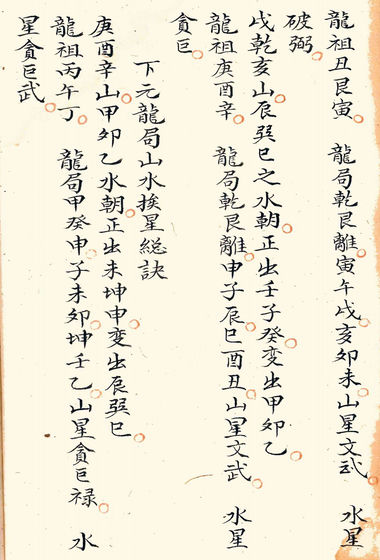 龍祖丑艮寅　龍局乾艮離寅午戌亥卯未山星文武　水星
破弼
戌乾亥山辰巽巳之水朝正出壬子癸变出甲卯乙
龍祖庚酉辛　龍局乾艮離申子辰巳酉丑山星文武　水星
貪巨
下元龍局山水挨星総訣
庚酉辛山甲卯乙水朝正出未坤申变出辰巽巳
龍祖丙午丁　龍局甲癸申子未卯坤壬乙山星貪巨禄　水
星貪巨武